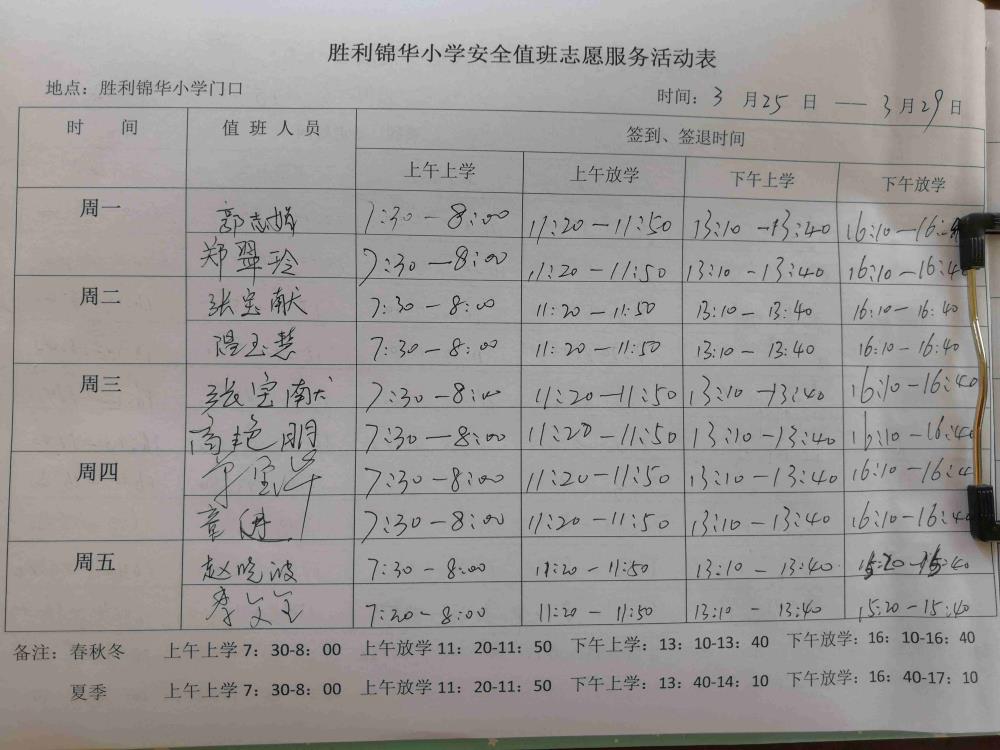 胜利锦华小学安全值班志愿服务活动表
地点：胜利锦华小学门口 时间：3月25日——3月29日
时 间 值班人员 签到、签退时间
上午上学 上午放学 下午上学 下午放学
周一 郭志娟 7:30-8:00 11:20-11:50 13:10-13:40 16:10-16:
郑翠玲 7:30-8:00 11:20-11:50 13:10-13:40 16:10-16:4
周二 张宝献 7:30-8:00 11:20-11:50 13:10-13:40 16:10-16:40
温玉慧 7:30-8:00 11:20-11:50 13:10-13:40 16:10-16:40
周三 张宝献 7:30-8:00 11:20-11:50 13:10-13:40 16:10-16:40
高艳明 7:30-8:00 11:20-11:50 13:10-13:40 16:10-16:40
周四 7:30-8:00 11:20-11:50 13:10-13:40 16:10-16:4
章进 7:30-8:00 11:20-11:50 13:10-13:40 16:10-16:40
周五 赵晓波 7:30-8:00 11:20-11:50 13:10-13:40 15:20-15:40
李文全 7:30-8:00 11:20-11:50 13:10-13:40 15:20-15:40
备注：春秋冬 上午上学7：30-8：00 上午放学11：20-11：50 下午上学：13：10-13：40 下午放学：16：10-16：40
夏季 上午上学7：30-8：00 上午放学11：20-11：50 下午上学：13：40-14：10 下午放学：16：40-17：10